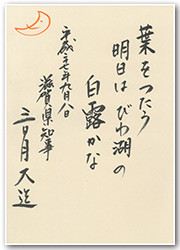 葉をつたう
明日は びわ湖の
白露かな
平成二七年九月八日
滋賀県知事
三日月 大造